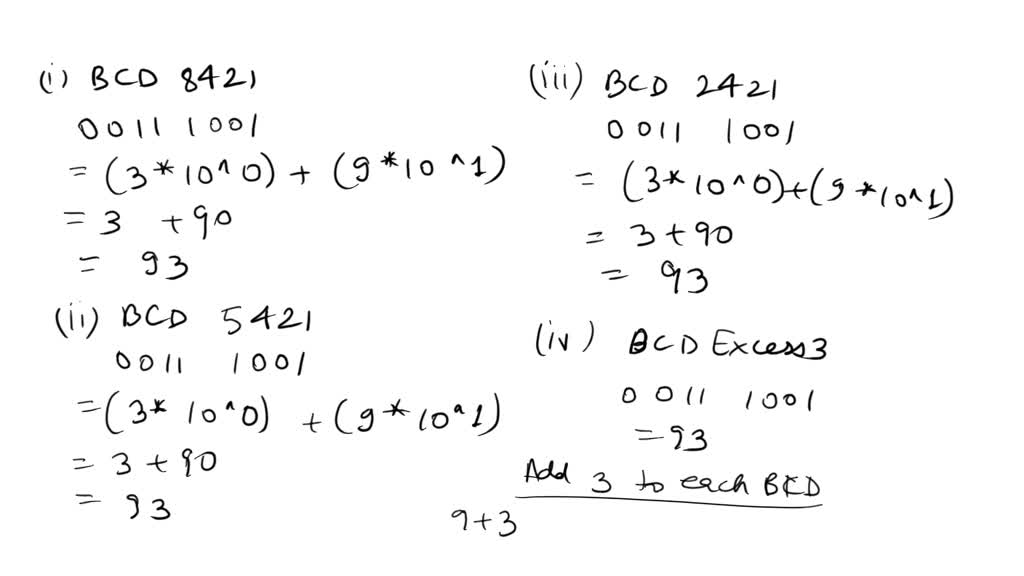 (i) BCD 8421
0011 1001
= (3*10^0) + (9*10^1)
= 3 +90
= 93
(ii) BCD 5421
0011 1001
=(3*10^0) +(9*10^1)
= 3 +90
= 93
(iii) BCD 2421
0011 1001
= (3*10^0)+(9*10^1)
= 3+90
= 93
(iv) BCD Excess3
0011 1001
=93
Add 3 to each BCD
9+3